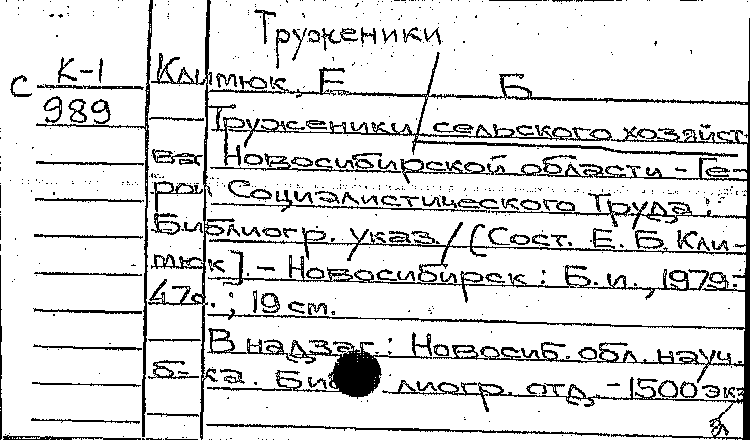 Труженики
С К-1 Климюк, Е Б
989 Труженики сельского хозяйст-
ва Новосибирской области - Ге-
рои Социалистического Труда:
Библиогр. указ / [Сост. Е. Б. Кли-
мюк]. - Новосибирск : Б. и., 1979.-
47с. ; 19 см.
В надзаг.: Новосиб. обл. науч.
б-ка. Библиогр. отд. - 1500 экз